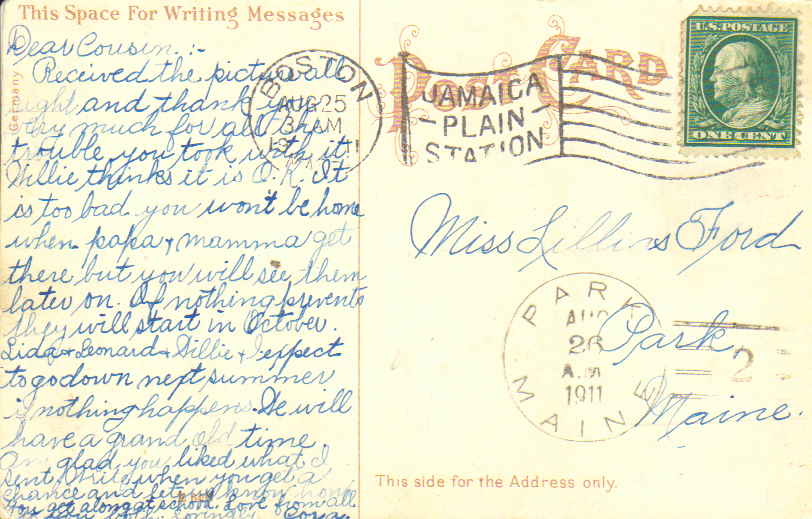 This Space For Writing Messages
Dear Cousin :-
Received the picture all
right and thank you
very much for all the
trouble you took with it.
Willie thinks it is O.K. It
is too bad you won't be home
when papa & mamma get
there but you will see them
later on. If nothing prevents
they will start in October.
Lida & Leonard & Willie & I expect
to go down next summer
if nothing happens. We will
have a grand old time.
Am glad you liked what I
sent. Write when you get a
chance and let us know how
you get along at school. Love from all
Lovingly Cora
Germany
POST CARD
BOSTON
AUG 25
3 AM
JAMAICA
PLAIN
STATION
U.S. POSTAGE
ONE CENT
Miss Lillins Ford
Park
Maine.
PARK
AUG
26
A.M.
1911
MAINE
2
This side for the Address only.